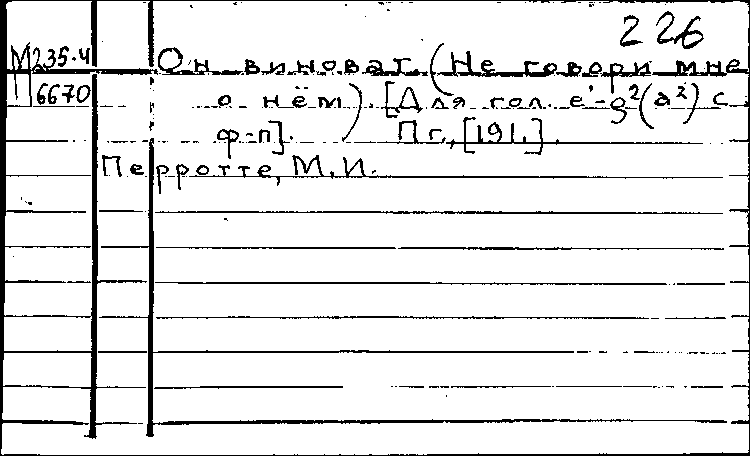 226
М 235-4
6670
Он виноват. (Не говори мне
о нём). [Для гол. e¹-g²(a²) с
ф-п]. Пг., [191.].
Перротте, М.И.